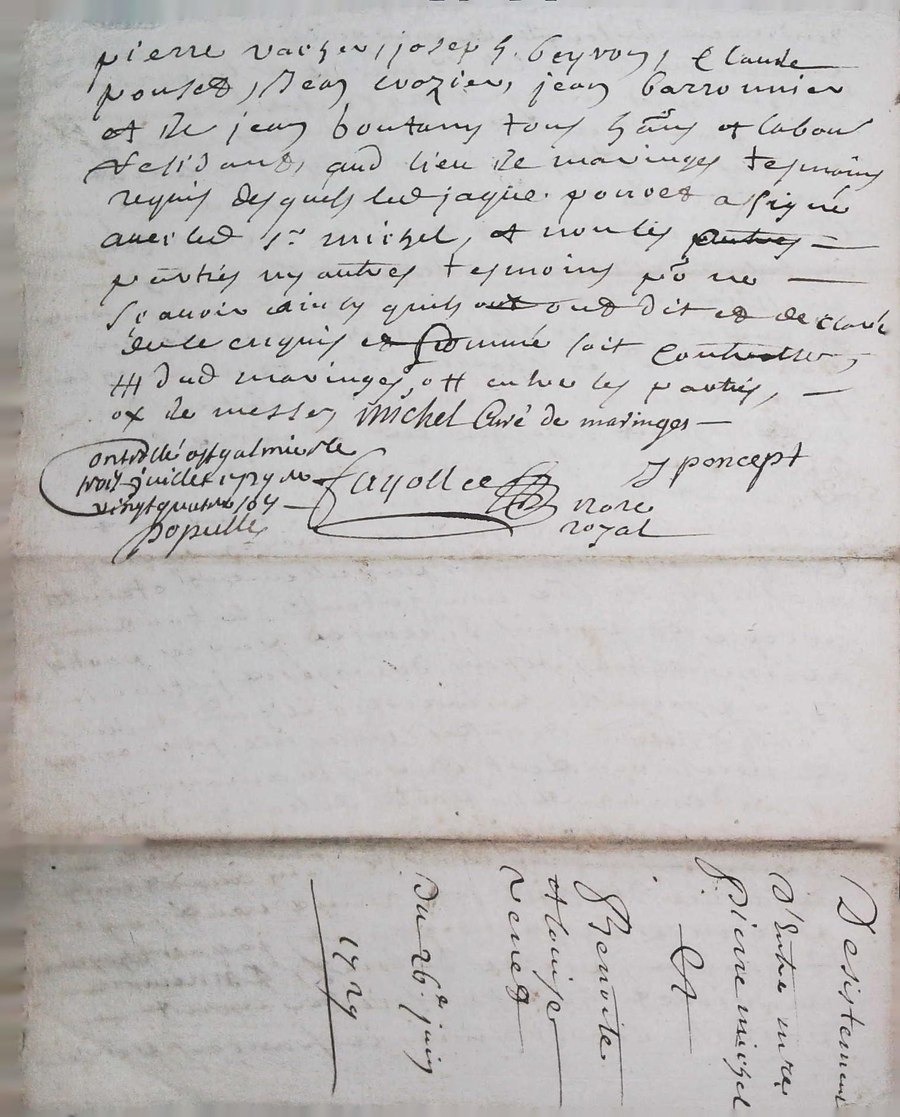 pierre vacher, joseph beyron, Claude
pouset, Jean crozier, jean barronnier
et de jean boutany tous habans et labour
residants aud lieu de maringes tesmoins
requis desquels led jaque ponset a signé
avec led sr michel, et non les autres
parties ny autres tesmoins po ne
scavoir ainsy quils ont dit et declaré
de ce enquis et sommé soit
dud maringes, entre les parties,
de messe, Michel Curé de maringes
ontrollé a st galmier le
trois juillet 1729 R
vingt quatre sols
populle
Fayolle
J poncept
nore
royal
Desistement
D'Entre mre
Pierre michel
Et
Benoite
et louise
venet
Du 26e juin
1729